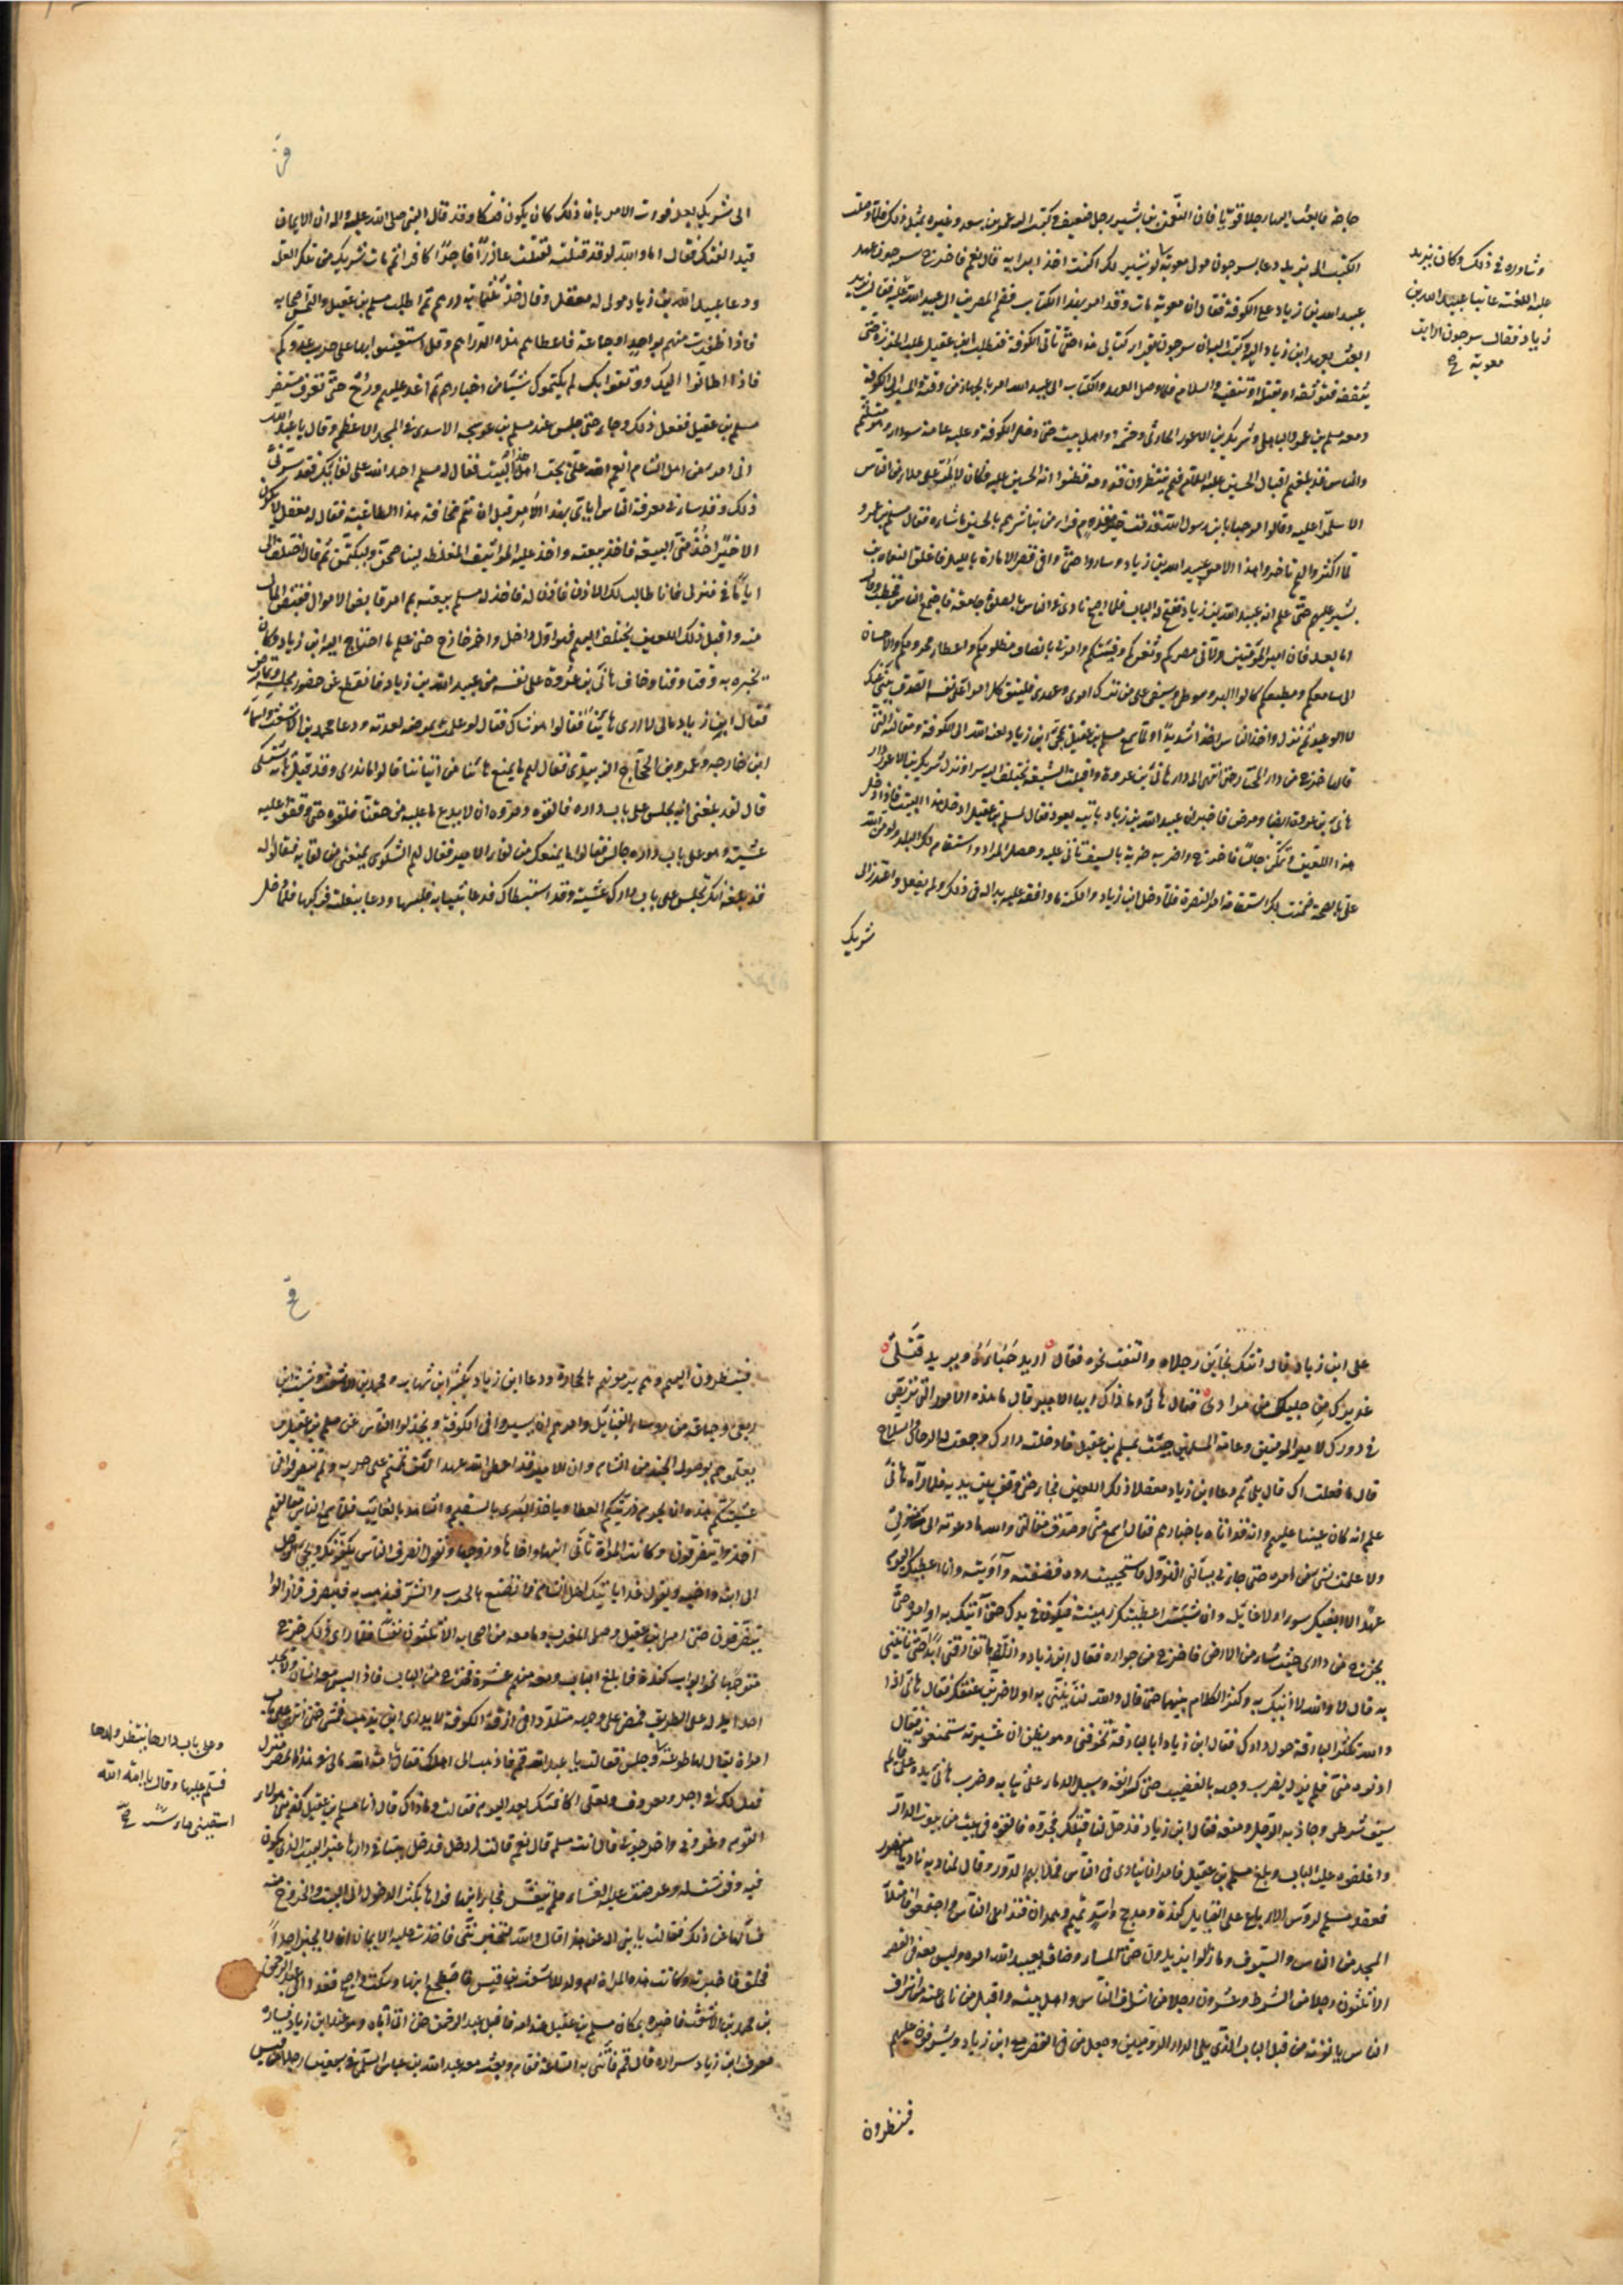 حاجة فابعث اليها رجلا قويا فان النعمن بن بشير رجل ضعيف وكتب اليه عمر بن سعد وغيره بمثل ذلك فلما وصلت
الكتب الى يزيد دعا بسرجون مولى معوية لو نشر لك اكنت اخذا برايه قال نعم فاخرج سرجون عهد
وشاوره في ذلك وكان يزيد
عليه اللعنة عاتبا عبيد الله بن
زياد فقال سرجون ارايت
معوية
عبيد الله بن زياد على الكوفة فقال ان معوية مات وقد امر بهذا الكتاب فضم المصرين الى عبيد الله فقال له يزيد
ابعث بعهد ابن زياد اليه وكتب اليه ان سر حين تقرا كتابي هذا حتى تاتي الكوفة فتطلب ابن عقيل طلب الخرزة حتى
تثقفه فتوثقه او تقتله او تنفيه والسلام فلما وصل العهد والكتاب الى عبيد الله امر بالجهاز من وقته والمسير الى الكوفة
ومعه مسلم بن عمرو الباهلي وشريك بن الاعور الحارثي وحشمه واهل بيته حتى دخل الكوفة وعليه عمامة سوداء وهو متلثم
والناس قد بلغهم اقبال الحسين عليه السلام فهم ينتظرون قدومه فظنوا انه الحسين عليه فكان لا يمر على ملا من الناس
الا سلموا عليه وقالوا مرحبا يا بن رسول الله قدمت خير مقدم فراى من تباشرهم بالحسين ما ساءه فقال مسلم بن عمرو
لما اكثروا لهم تاخروا هذا الامير عبيد الله بن زياد وساروا حتى وافى قصر الامارة بالليل فاغلق النعمان بن
بشير عليهم حتى علم انه عبيد الله بن زياد ففتح له الباب فلما اصبح نادى في الناس بالصلوة جامعة فاجتمع الناس فخطب وقال
اما بعد فان امير المؤمنين ولاني مصركم وثغركم وفيئكم وامرني بانصاف مظلومكم واعطاء محرومكم والاحسان
الى سامعكم ومطيعكم كالوالد البر وسوطي وسيفي على من ترك امري وعهدي فليتق كل امرء على نفسه الصدق ينبي عنك
لا الوعيد ثم نزل واخذ الناس اخذا شديدا ولما سمع مسلم بن عقيل بمجيء ابن زياد لعنه الله الى الكوفة ومقالته التي
قالها خرج من دار المختار حتى انتهى الى دار هاني بن عروة واقبلت الشيعة تختلف اليه سرا ونزل شريك بن الاعور دار
هاني بن عروة ايضا ومرض فاخبر ان عبيد الله بن زياد ياتيه يعوده فقال لمسلم بن عقيل ادخل هذا البيت فاذا دخل
هذا اللعين وتمكن جالسا فاخرج واضربه ضربة بالسيف تاتي عليه وحصل المراد واستقام لك البلد ولو من الله
علي بالصحة ضمنت لك استقامة امر البصرة فلما دخل ابن زياد وامكنه ما وافقه عليه بدا له في ذلك ولم يفعل واعتذر الى
شريك
الى شريك بعد فوات الامر بان ذلك كان يكون فتكا وقد قال النبي صلى الله عليه واله ان الايمان
قيد الفتك فقال اما والله لو قد قتلته لقتلت غادرا فاجرا كافرا ثم مات شريك من تلك العلة
ودعا عبيد الله بن زياد مولى له معقل وقال خذ ثلثماية درهم ثم اطلب مسلم بن عقيل والتمس اصحابه
فاذا ظفرت منهم بواحد او جماعة فاعطهم هذه الدراهم وقل استعينوا بها على حرب عدوكم
فاذا اطمأنوا اليك ووثقوا بك لم يكتموك شيئا من اخبارهم ثم اغد عليهم ورح حتى تعرف مستقر
مسلم بن عقيل ففعل ذلك وجاء حتى جلس عند مسلم بن عوسجة الاسدي في المسجد الاعظم وقال يا عبد الله
اني امرء من اهل الشام انعم الله علي بحب اهل هذا البيت فقال له مسلم احمد الله على لقائك فقد سرني
ذلك وقد ساءني معرفة الناس اياي بهذا الامر قبل ان يتم مخافة هذا الطاغية فقال له معقل لا يكون
الا خيرا خذ مني البيعة فاخذ بيعته واخذ عليه المواثيق المغلظة ليناصحن وليكتمن ثم قال اختلف الي
اياما في منزلي فانا طالب لك الاذن فاذن له فاخذ له مسلم بيعته ثم امر قابض الاموال فقبض المال
منه واقبل ذلك اللعين يختلف اليهم فهو اول داخل واخر خارج حتى علم ما احتاج اليه ابن زياد وكان
يخبره به وقتا وقتا وخاف هاني بن عروة على نفسه من عبيد الله بن زياد فانقطع عن حضور مجلسه وتمارض
فقال ابن زياد مالي لا ارى هانيا فقالوا هو شاك فقال لو علمت بمرضه لعدته ودعا محمد بن الاشعث واسماء
ابن خارجة وعمرو بن الحجاج الزبيدي فقال لهم ما يمنع هانيا من اتياننا فقالوا ما ندري وقد قيل انه يشتكي
قال لقد بلغني انه يجلس على باب داره فالقوه ومروه ان لا يدع ما عليه من حقنا فلقوه حتى وقفوا عليه
عشية وهو على باب داره جالس فقالوا ما يمنعك من لقاء الامير فقال لهم الشكوى يمنعني من لقايه فقالوا له
قد بلغه انك تجلس على باب دارك عشية وقد استبطاك فدعا بثيابه فلبسها ودعا ببغلته فركبها فلما دخل
على ابن زياد قال اتتك بخاين رجلاه والتفت نحوه فقال اريد حباءه ويريد قتلي
عذيرك من خليلك من مراد فقال هاني وما ذاك ايها الامير قال ما هذه الامور التي تربص
في دورك لامير المؤمنين وعامة المسلمين جئت بمسلم بن عقيل فادخلته دارك وجمعت له الرجال والسلاح
قال ما فعلت ذلك قال بلى ثم دعا ابن زياد معقلا ذلك اللعين فجاء حتى وقف بين يديه فلما رآه هاني
علم انه كان عينا عليهم وانه قد اتاه باخبارهم فقال اسمع مني وصدق مقالتي والله ما دعوته الى منزلي
ولا علمت بشيء من امره حتى جاءني يسالني النزول فاستحييت من رده فضيفته وآويته وانا اعطيك اليوم
عهدا لا ابغيك سوءا ولا غايلة وان شئت اعطيتك رهينة فيكون في يدك حتى آتيك به او امره حتى
يخرج من داري حيث شاء من الارض فاخرج من جواره فقال ابن زياد والله لا تفارقني ابدا حتى تاتيني
به قال لا والله لا اتيك به وكثر الكلام بينهما حتى قال والله لتاتيني به او لاضربن عنقك فقال هاني اذا
والله تكثر البارقة حول دارك فقال ابن زياد ابالبارقة تخوفني وهو يظن ان عشيرته ستمنعه ثم قال
ادنوه مني فلم يزل يضرب وجهه بالقضيب حتى كسر انفه وسيل الدماء على ثيابه وضرب هاني يده على قائم
سيف شرطي وجاذبه الرجل ومنعه فقال ابن زياد قد حل لنا قتلك فجروه فالقوه في بيت من بيوت الدار
واغلقوا عليه الباب وبلغ مسلم بن عقيل فامر ان ينادى في الناس فملا بهم الدور وقال لمناديه ناد يا منصور
فعقد مسلم لرؤس الارباع على القبايل كندة ومذحج واسد وتميم وهمدان فتداعى الناس واجتمعوا فامتلأ
المسجد من الناس والسوق وما زالوا يزيدون حتى المساء وضاق بعبيد الله امره وليس معه في القصر
الا ثلثون رجلا من الشرط وعشرون رجلا من اشراف الناس واهل بيته واقبل من نأى عنه من اشراف
الناس ياتونه من قبل الباب الذي يلي الدار الروميين وجعل من في القصر مع ابن زياد يشرفون عليهم
فينظرون
فينظرون اليهم وهم يرمونهم بالحجارة ودعا ابن زياد بكثير بن شهاب ومحمد بن الاشعث وشبث بن
ربعي وجماعة من رؤساء القبايل وامرهم ان يسيروا في الكوفة ويخذلوا الناس عن مسلم بن عقيل
يعلموهم بوصول الجند من الشام وان الامير قد اعطى الله عهدا لئن تممتم على حربه ولم تنصرفوا من
عشيتكم هذه ان يحرم ذريتكم العطاء وياخذ البري بالسقيم والشاهد بالغايب فلما سمع الناس مقالتهم
اخذوا يتفرقون وكانت المراة تاتي ابنها واخاها وزوجها وتقول انصرف الناس يكفونك ويجيء الرجل
الى ابنه واخيه ويقول غدا ياتيك اهل الشام فما تصنع بالحرب والشر فيذهب به فينصرف فما زالوا
يتفرقون حتى امسى ابن عقيل وصلى المغرب وما معه من اصحابه الا ثلثون نفسا فلما راى ذلك خرج
متوجها نحو ابواب كندة فما بلغ الباب ومعه منهم عشرة فخرج من الباب فاذا ليس معه انسان ولا يجد
احدا يدله على الطريق فمضى على وجهه متلددا في ازقة الكوفة لا يدري اين يذهب فمشى حتى اتى على باب
امراة يقال لها طوعة وجلس فقالت يا عبد الله قم فاذهب الى اهلك فقال يا امة الله مالي في هذا المصر منزل
وعلى باب دارها تنتظر ولدها
فسلم عليها وقال يا امة الله
اسقيني ماء
فهل لك في اجر ومعروف ولعلي اكافئك بعد اليوم فقالت وما ذاك قال انا مسلم بن عقيل كذبني هؤلاء
القوم وغروني واخرجوني قال انت مسلم قال نعم قالت ادخل فدخل بيتا في دارها غير البيت الذي تكون
فيه وفرشت له وعرضت عليه العشاء فلم يتعش فجاء ابنها فراها تكثر الدخول الى البيت والخروج منه
فسألها عن ذلك فقالت يا بني اله عن هذا قال والله لتخبريني فاخذت عليه الايمان ان لا يخبر احدا
فحلف فاخبرته وكانت هذه المراة ام ولد للاشعث بن قيس فاضطجع ابنها وسكت واصبح فغدا الى عبد الرحمن
بن محمد بن الاشعث فاخبره بمكان مسلم بن عقيل عند امه فاقبل عبد الرحمن حتى اتى اباه وهو عند ابن زياد فساره
فعرف ابن زياد سراره قال قم فأتني به الساعة فقام وبعث معه عبيد الله بن عباس السلمي في سبعين رجلا من قيس